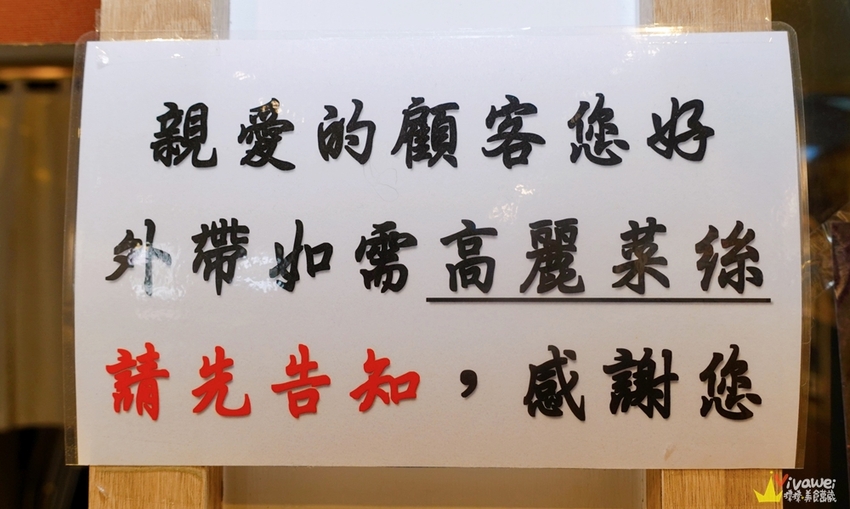 親愛的顧客您好
外帶如需高麗菜絲
請先告知，感謝您
Vivawei